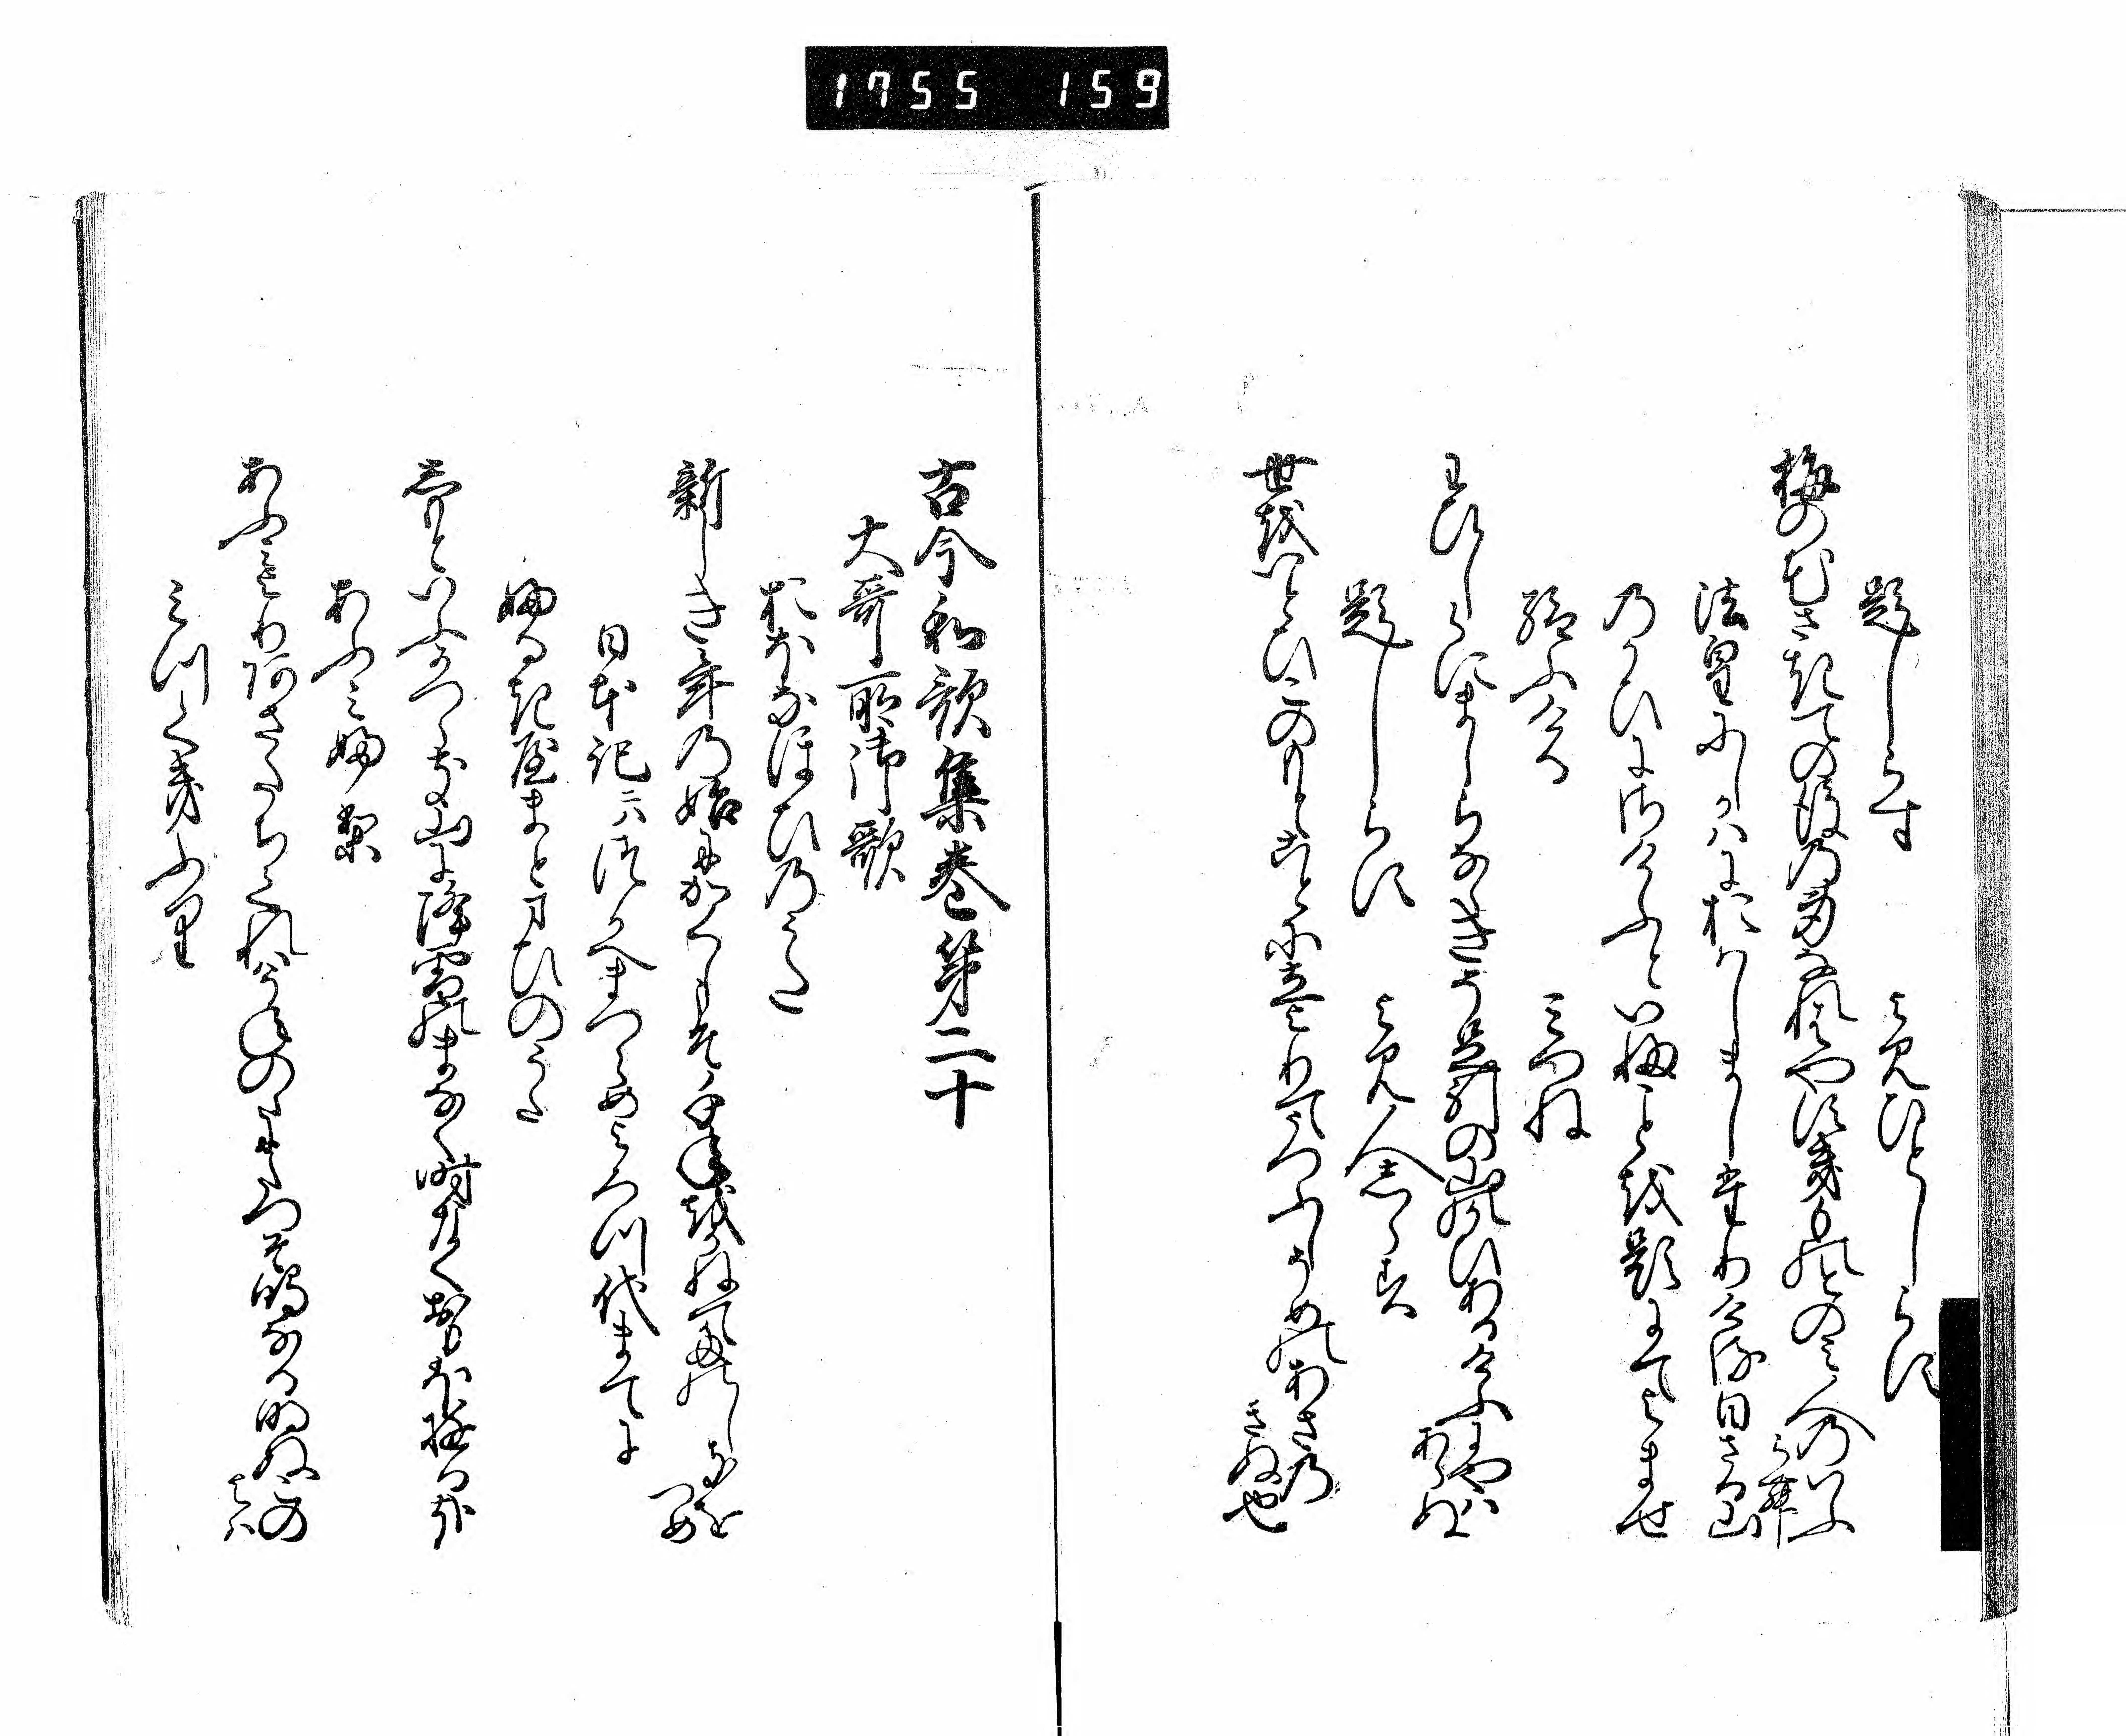 1755 159
題しらす　よみひとしらす
梅の花さきての後の身なれはやすき物とのみ人のいふらむ
法皇にしかはにおはしましたりける日さる山
のかひにさけふといふことを題にてよませ
給ふける　みつね
わひしらにましらなゝきそ足引の山のかひあるけふにやはあらぬ
題しらす　よみ人しらす
世をいとひこのもとことに立よりてうつふしそめの麻のきぬ也
古今和歌集巻第二十
大哥所御歌
おほなほひのうた
新しき年の始にかくしこそ千年をかねてたのしきをつめ
日本記ニハつかへまつらめよろつ代まてに
ふるきやまとまひのうた
しもとゆふかつらき山に降雪のまなく時なくおもほゆるかな
あふみふり
あふみよりあさたちくれはうねのにたつそ鳴なる明ぬこのよは
みつくきふり